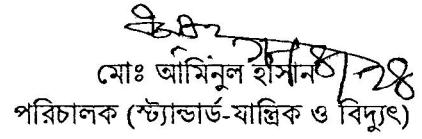 মোঃ আমিনুল হাসান
পরিচালক (স্ট্যান্ডার্ড-যান্ত্রিক ও বিদ্যুৎ)